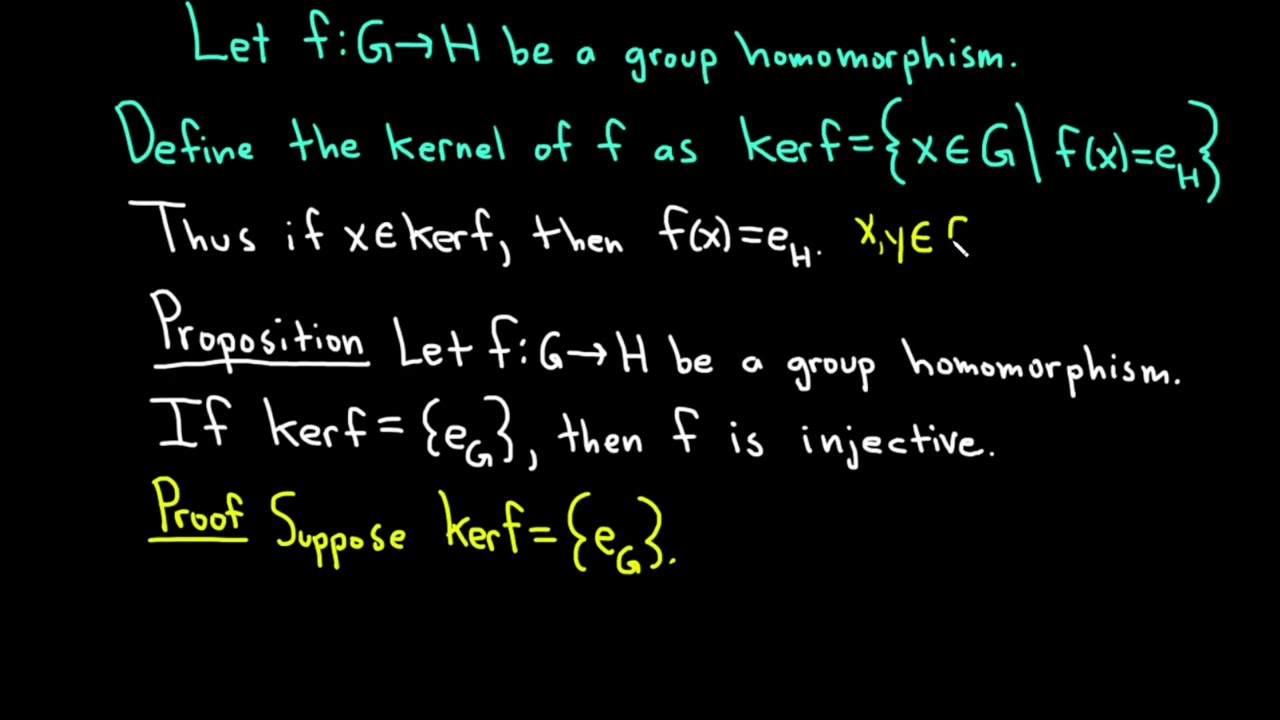 Let f:G→H be a group homomorphism.
Define the kernel of f as kerf={x∈G\f(x)=e_H}
Thus if x∈kerf, then f(x)=e_H. x,y∈
Proposition Let f:G→H be a group homomorphism.
If kerf={e_G}, then f is injective.
Proof Suppose kerf={e_G}.